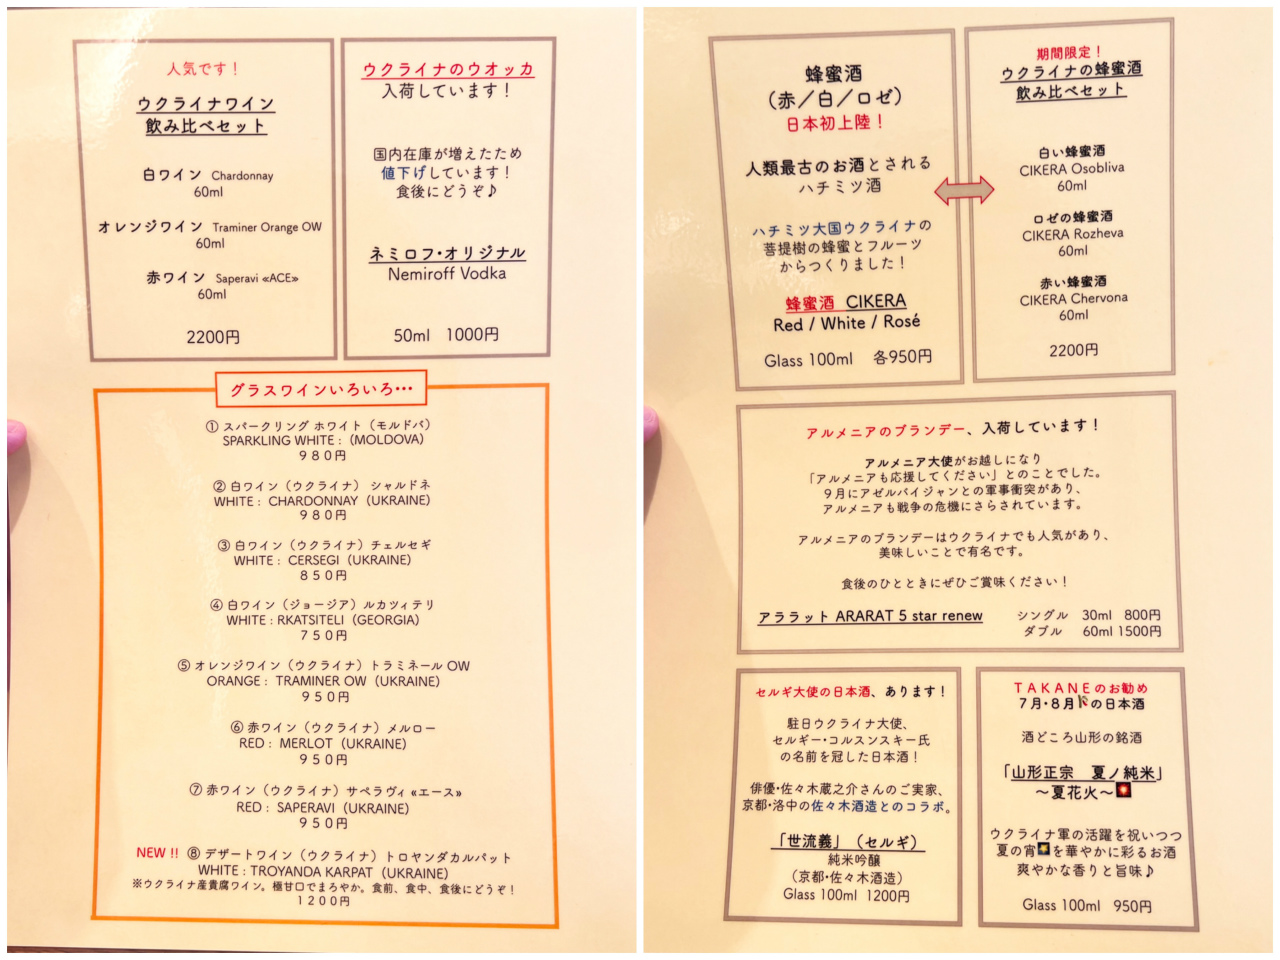 人気です！
ウクライナワイン
飲み比べセット
白ワイン Chardonnay
60ml
オレンジワイン Traminer Orange OW
60ml
赤ワイン Saperavi «ACE»
60ml
2200円
ウクライナのウオッカ
入荷しています！
国内在庫が増えたため
値下げしています！
食後にどうぞ♪
ネミロフ・オリジナル
Nemiroff Vodka
50ml 1000円
グラスワインいろいろ…
① スパークリング ホワイト（モルドバ）
SPARKLING WHITE :（MOLDOVA）
９８０円
② 白ワイン（ウクライナ） シャルドネ
WHITE : CHARDONNAY（UKRAINE）
９８０円
③ 白ワイン（ウクライナ）チェルセギ
WHITE : CERSEGI（UKRAINE）
８５０円
④ 白ワイン（ジョージア）ルカツィテリ
WHITE : RKATSITELI（GEORGIA）
７５０円
⑤ オレンジワイン（ウクライナ）トラミネール OW
ORANGE : TRAMINER OW（UKRAINE）
９５０円
⑥ 赤ワイン（ウクライナ）メルロー
RED : MERLOT（UKRAINE）
９５０円
⑦ 赤ワイン（ウクライナ）サペラヴィ «エース»
RED : SAPERAVI（UKRAINE）
９５０円
NEW !! ⑧ デザートワイン（ウクライナ）トロヤンダカルパット
WHITE : TROYANDA KARPAT（UKRAINE）
※ウクライナ産貴腐ワイン。極甘口でまろやか。食前、食中、食後にどうぞ！
１２００円
蜂蜜酒
（赤／白／ロゼ）
日本初上陸！
人類最古のお酒とされる
ハチミツ酒
ハチミツ大国ウクライナの
菩提樹の蜂蜜とフルーツ
からつくりました！
蜂蜜酒 CIKERA
Red / White / Rosé
Glass 100ml 各950円
期間限定！
ウクライナの蜂蜜酒
飲み比べセット
白い蜂蜜酒
CIKERA Osobliva
60ml
ロゼの蜂蜜酒
CIKERA Rozheva
60ml
赤い蜂蜜酒
CIKERA Chervona
60ml
2200円
アルメニアのブランデー、入荷しています！
アルメニア大使がお越しになり
「アルメニアも応援してください」とのことでした。
９月にアゼルバイジャンとの軍事衝突があり、
アルメニアも戦争の危機にさらされています。
アルメニアのブランデーはウクライナでも人気があり、
美味しいことで有名です。
食後のひとときにぜひご賞味ください！
アララット ARARAT 5 star renew シングル 30ml 800円
ダブル 60ml 1500円
セルギ大使の日本酒、あります！
駐日ウクライナ大使、
セルギー・コルスンスキー氏
の名前を冠した日本酒！
俳優・佐々木蔵之介さんのご実家、
京都・洛中の佐々木酒造とのコラボ。
「世流義」（セルギ）
純米吟醸
（京都・佐々木酒造）
Glass 100ml 1200円
ＴＡＫＡＮＥのお勧め
７月・８月の日本酒
酒どころ山形の銘酒
「山形正宗 夏ノ純米」
〜夏花火〜
ウクライナ軍の活躍を祝いつつ
夏の宵を華やかに彩るお酒
爽やかな香りと旨味♪
Glass 100ml 950円